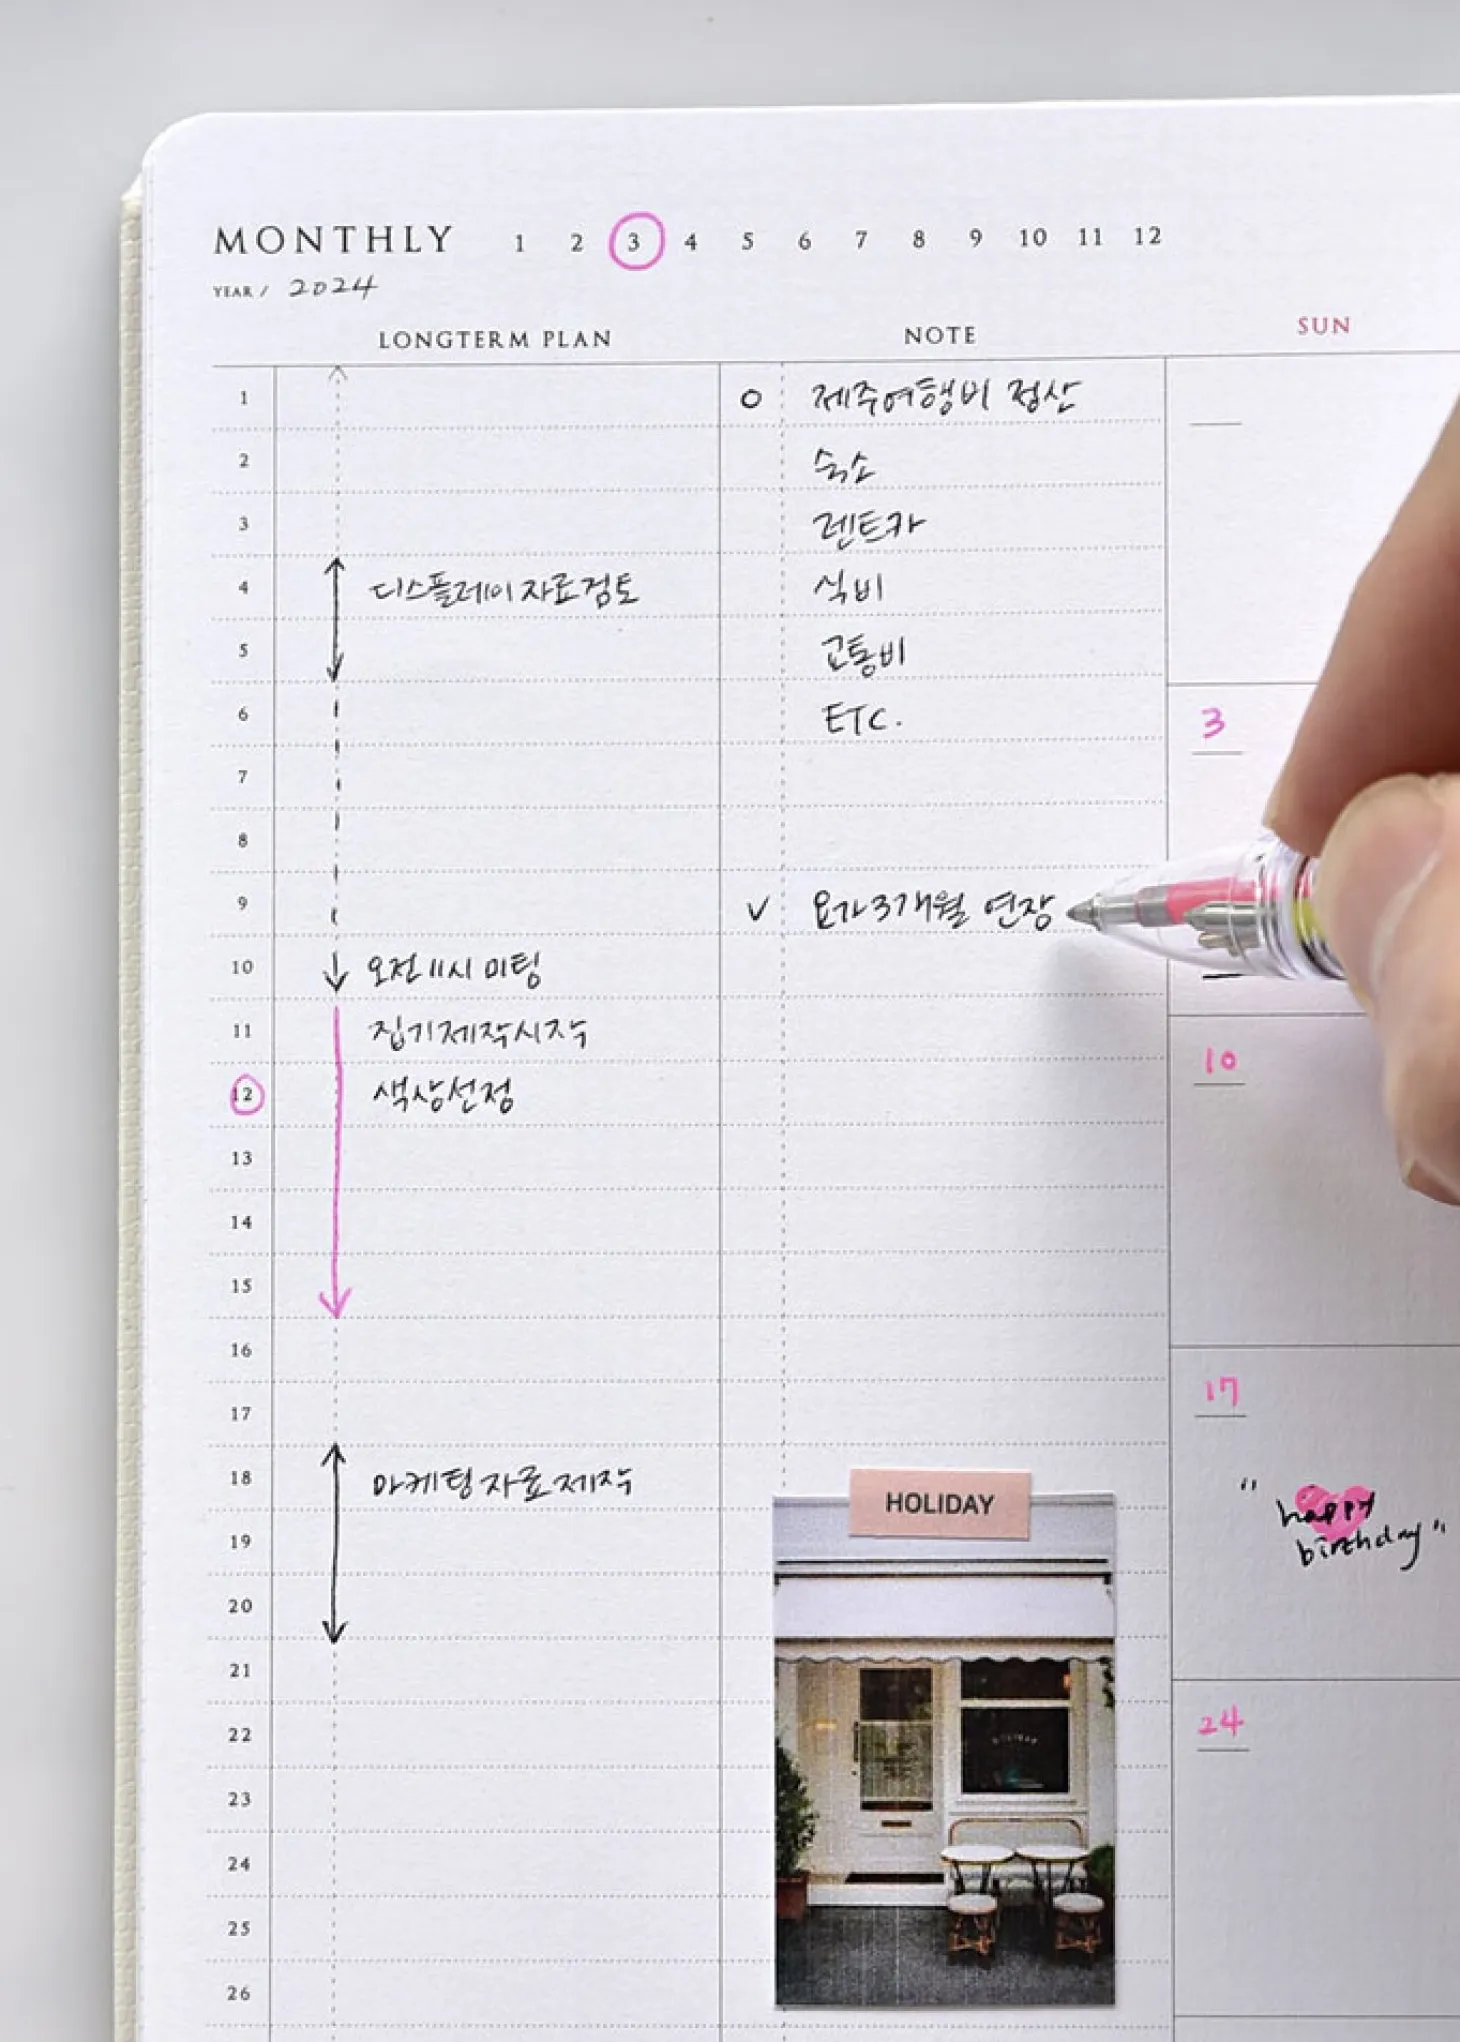 MONTHLY 1 2 3 4 5 6 7 8 9 10 11 12
YEAR / 2024
LONGTERM PLAN NOTE SUN
1 O 제주여행비 정산
2 숙소
3 렌트카
4 디스플레이 자료검토 식비
5 교통비
6 ETC.
3
7
8
9 V 요가 3개월 연장
10 오전 11시 미팅
11 집기제작시작
10
12 색상선정
13
14
15
16
17
17
18 마케팅 자료 제작
HOLIDAY
"happy
birthday"
19
20
21
22
24
23
24
25
26